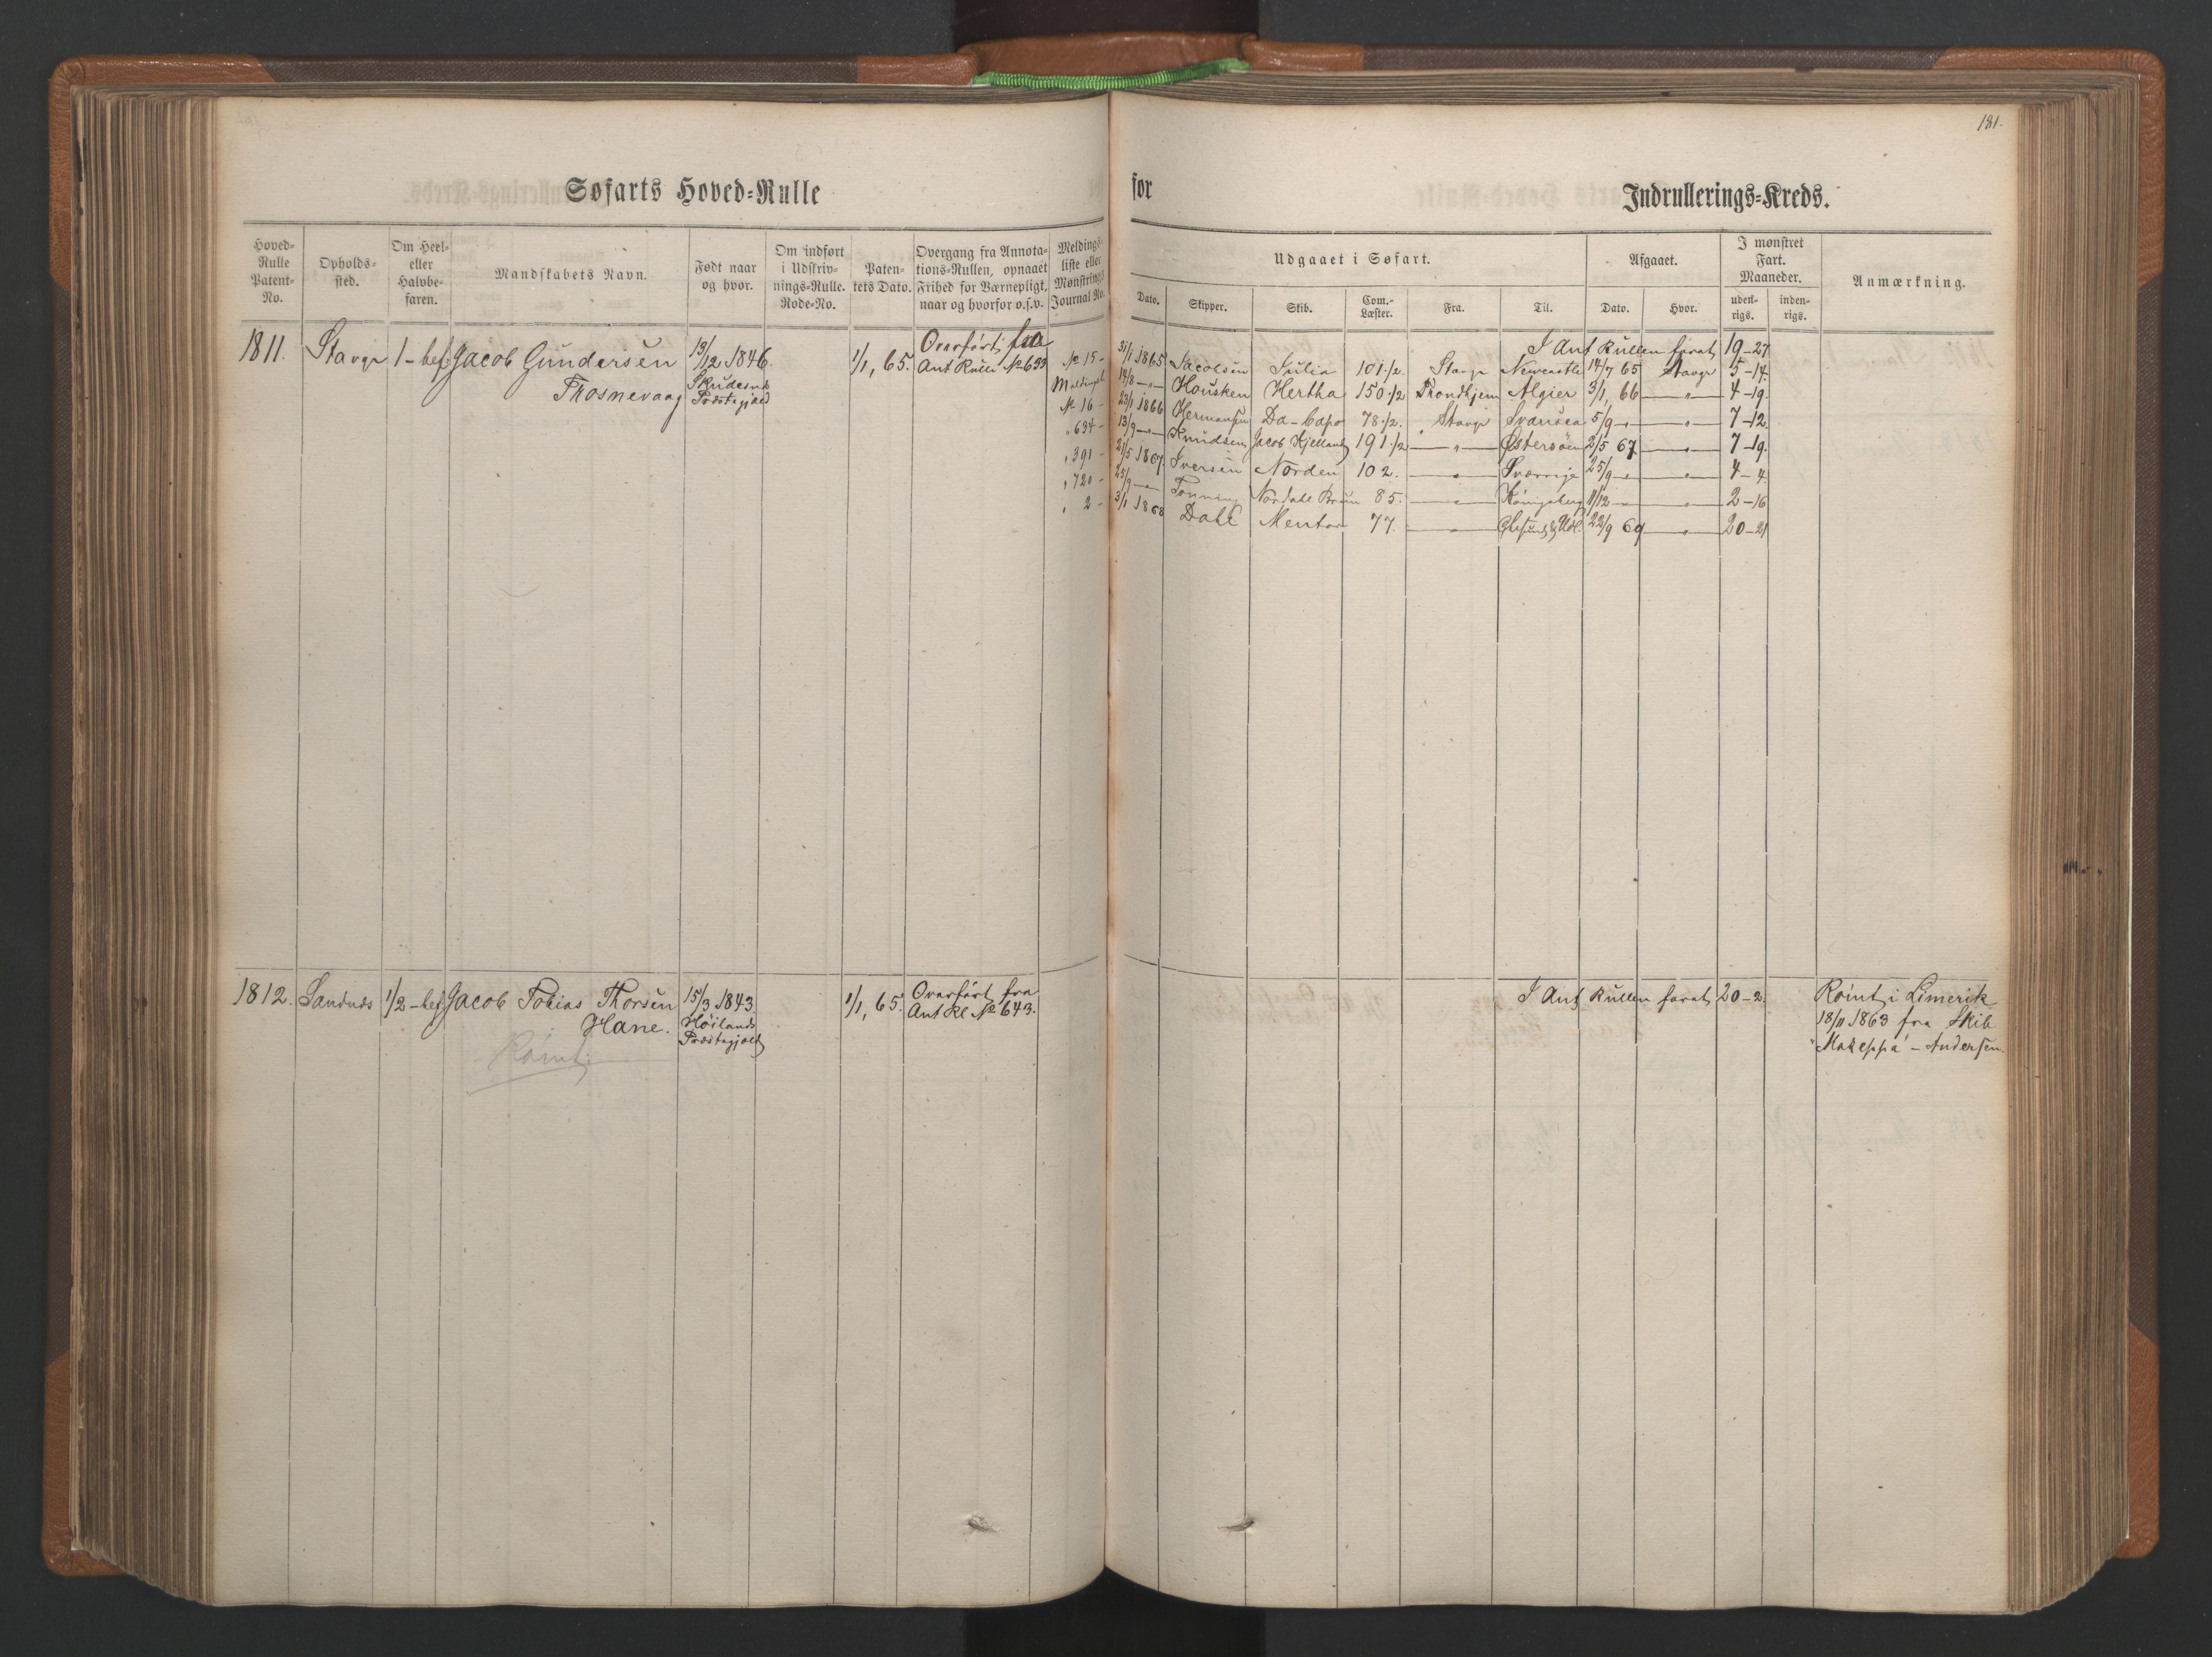 181.
Søfarts Hoved=Rulle
for
Indrullerings=Kreds.
Hoved=Rulle Patent=No.
Opholds=sted.
Om Heel= eller Halvbe=faren.
Mandskabets Navn.
Født naar og hvor.
Om indført i Udskriv=nings=Rulle. Rode=No.
Paten=tets Dato.
Overgang fra Annota=tions=Rullen, opnaaet Frihed for Værnepligt, naar og hvorfor o.s.v.
Meldings=liste eller Mønstrings Journal No.
Udgaaet i Søfart.
Dato.
Skipper.
Skib.
Com.=Læster.
Fra.
Til.
Afgaaet.
Dato.
Hvor.
I mønstret Fart. Maaneder.
uden=rigs.
inden=rigs.
Anmærkning.
1811. Stavgr 1-bef. Jacob Gundersen 13/12 1846. 1/1, 65. Overført fra
Thosnevaag Skudesnes Præstegjæld Ant Rulle No 633
I Ant Rullen faret 19-27
No 15 - 31/1 1865 Jacobsen Julia 101 1/2 Stavgr Newcastle 14/7 65 Stavgr 5-14.
14/8 -"- Housken Hertha 150 1/2 Trondhjem Algier 3/1, 66 -"- 4-19.
No 16 - 23/1 1866 Hermansen Da-Capo 78 1/2. Stavgr Svansea 5/9 -"- -"- 7-12.
" 634 - 13/9 -"- Knudsen Jacob Kjelland 191 1/2 -"- Østersøen 2/5 67. -"- 7-19.
" 391 - 21/5 1867. Iversen Norden 102. -"- Sverrige 25/9 -"- -"- 4-4.
" 720 - 25/9 -"- Tonning Nordahl Brun 85. -"- Königsberg 11/12 -"- -"- 2-16
" 2 - 3/1 1868 Dahl Mentor 77. -"- & Udl. 22/9 69 -"- 20-21
1812. Sandnæs 1/2-bef. Jacob Tobias Thorsen 15/3 1843. 1/1, 65. Overført fra
Hane. Høilands Præstegjæld Ant Rl No 643.
Rømt
I Ant Rullen faret 20-2.
Rømt i Limerik
18/11 1863 fra Skib
- Andersen.